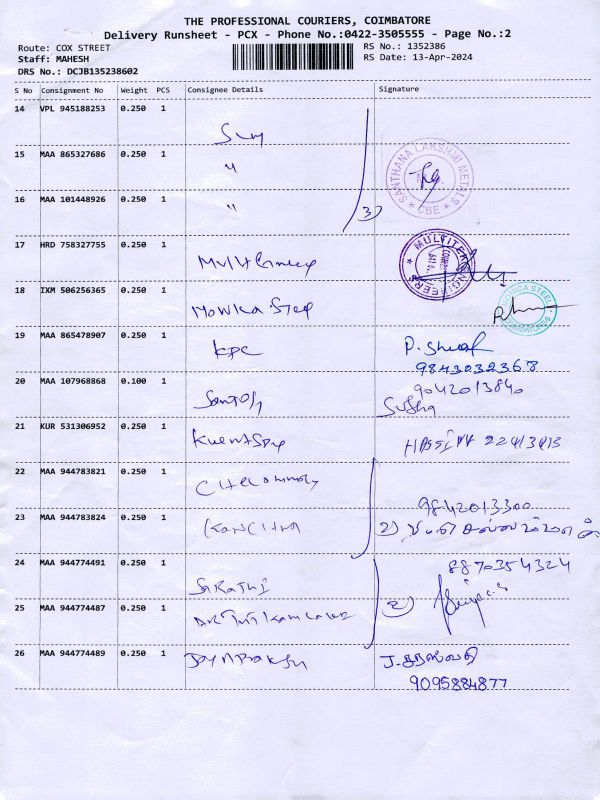 THE PROFESSIONAL COURIERS, COIMBATORE
Delivery Runsheet - PCX - Phone No.:0422-3505555 - Page No.:2
Route: COX STREET
RS No.: 1352386
Staff: MAHESH
RS Date: 13-Apr-2024
DRS No.: DCJB135238602
S No Consignment No Weight PCS Consignee Details Signature
14 VPL 945188253 0.250 1
15 MAA 865327686 0.250 1 "
SANTHANA LAKSHMI METALS * CBE *
16 MAA 101448926 0.250 1 " 3)
17 HRD 758327755 0.250 1
18 IXM 506256365 0.250 1 Monika Steel
MONICA STEEL
19 MAA 865478907 0.250 1 KPC
9843032368
20 MAA 107968868 0.100 1 Santosh
9042013840
21 KUR 531306952 0.250 1
22 MAA 944783821 0.250 1
9842013300
23 MAA 944783824 0.250 1 2)
24 MAA 944774491 0.250 1 Sarathi
8870354324
25 MAA 944774487 0.250 1 2)
26 MAA 944774489 0.250 1 J. சரஸ்வதி
9095884877